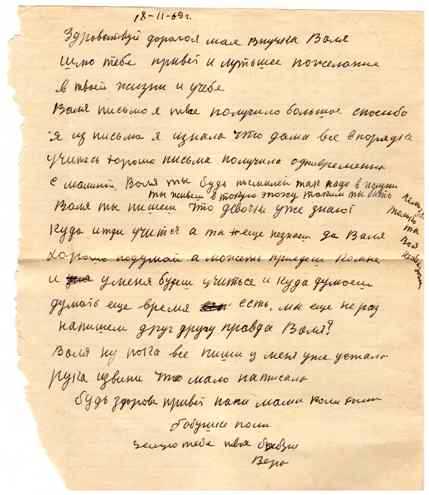 18-11-69г.
Здравствуй дорогая мая Внучка Валя
Шлю тебе привет и лутьшее пожелание
в твоей жизни и учебе
Валя письмо я твае получило большое спасибо
я из письма я изнала что дома все в порядке
учитесь хорошо письма получила одновременна
с маминой. Валя ты будь
ты живеш в такую эпоху
Валя ты пишеш что девочки уже знают
куда итди учится а ты еще незнаеш да Валя
хорошо подумай аможеть приедеш комне
и уменя будеш учиться и куда думоеш
думать еще время есть, мы еще не раз
напишем друг другу правда Валя?
Валя ну пока все пиши у меня уже устала
рука извени что мало написала
будь здорова привет папи мами Коли
бабушки поли
целую тебе твоя бабуш
Вера